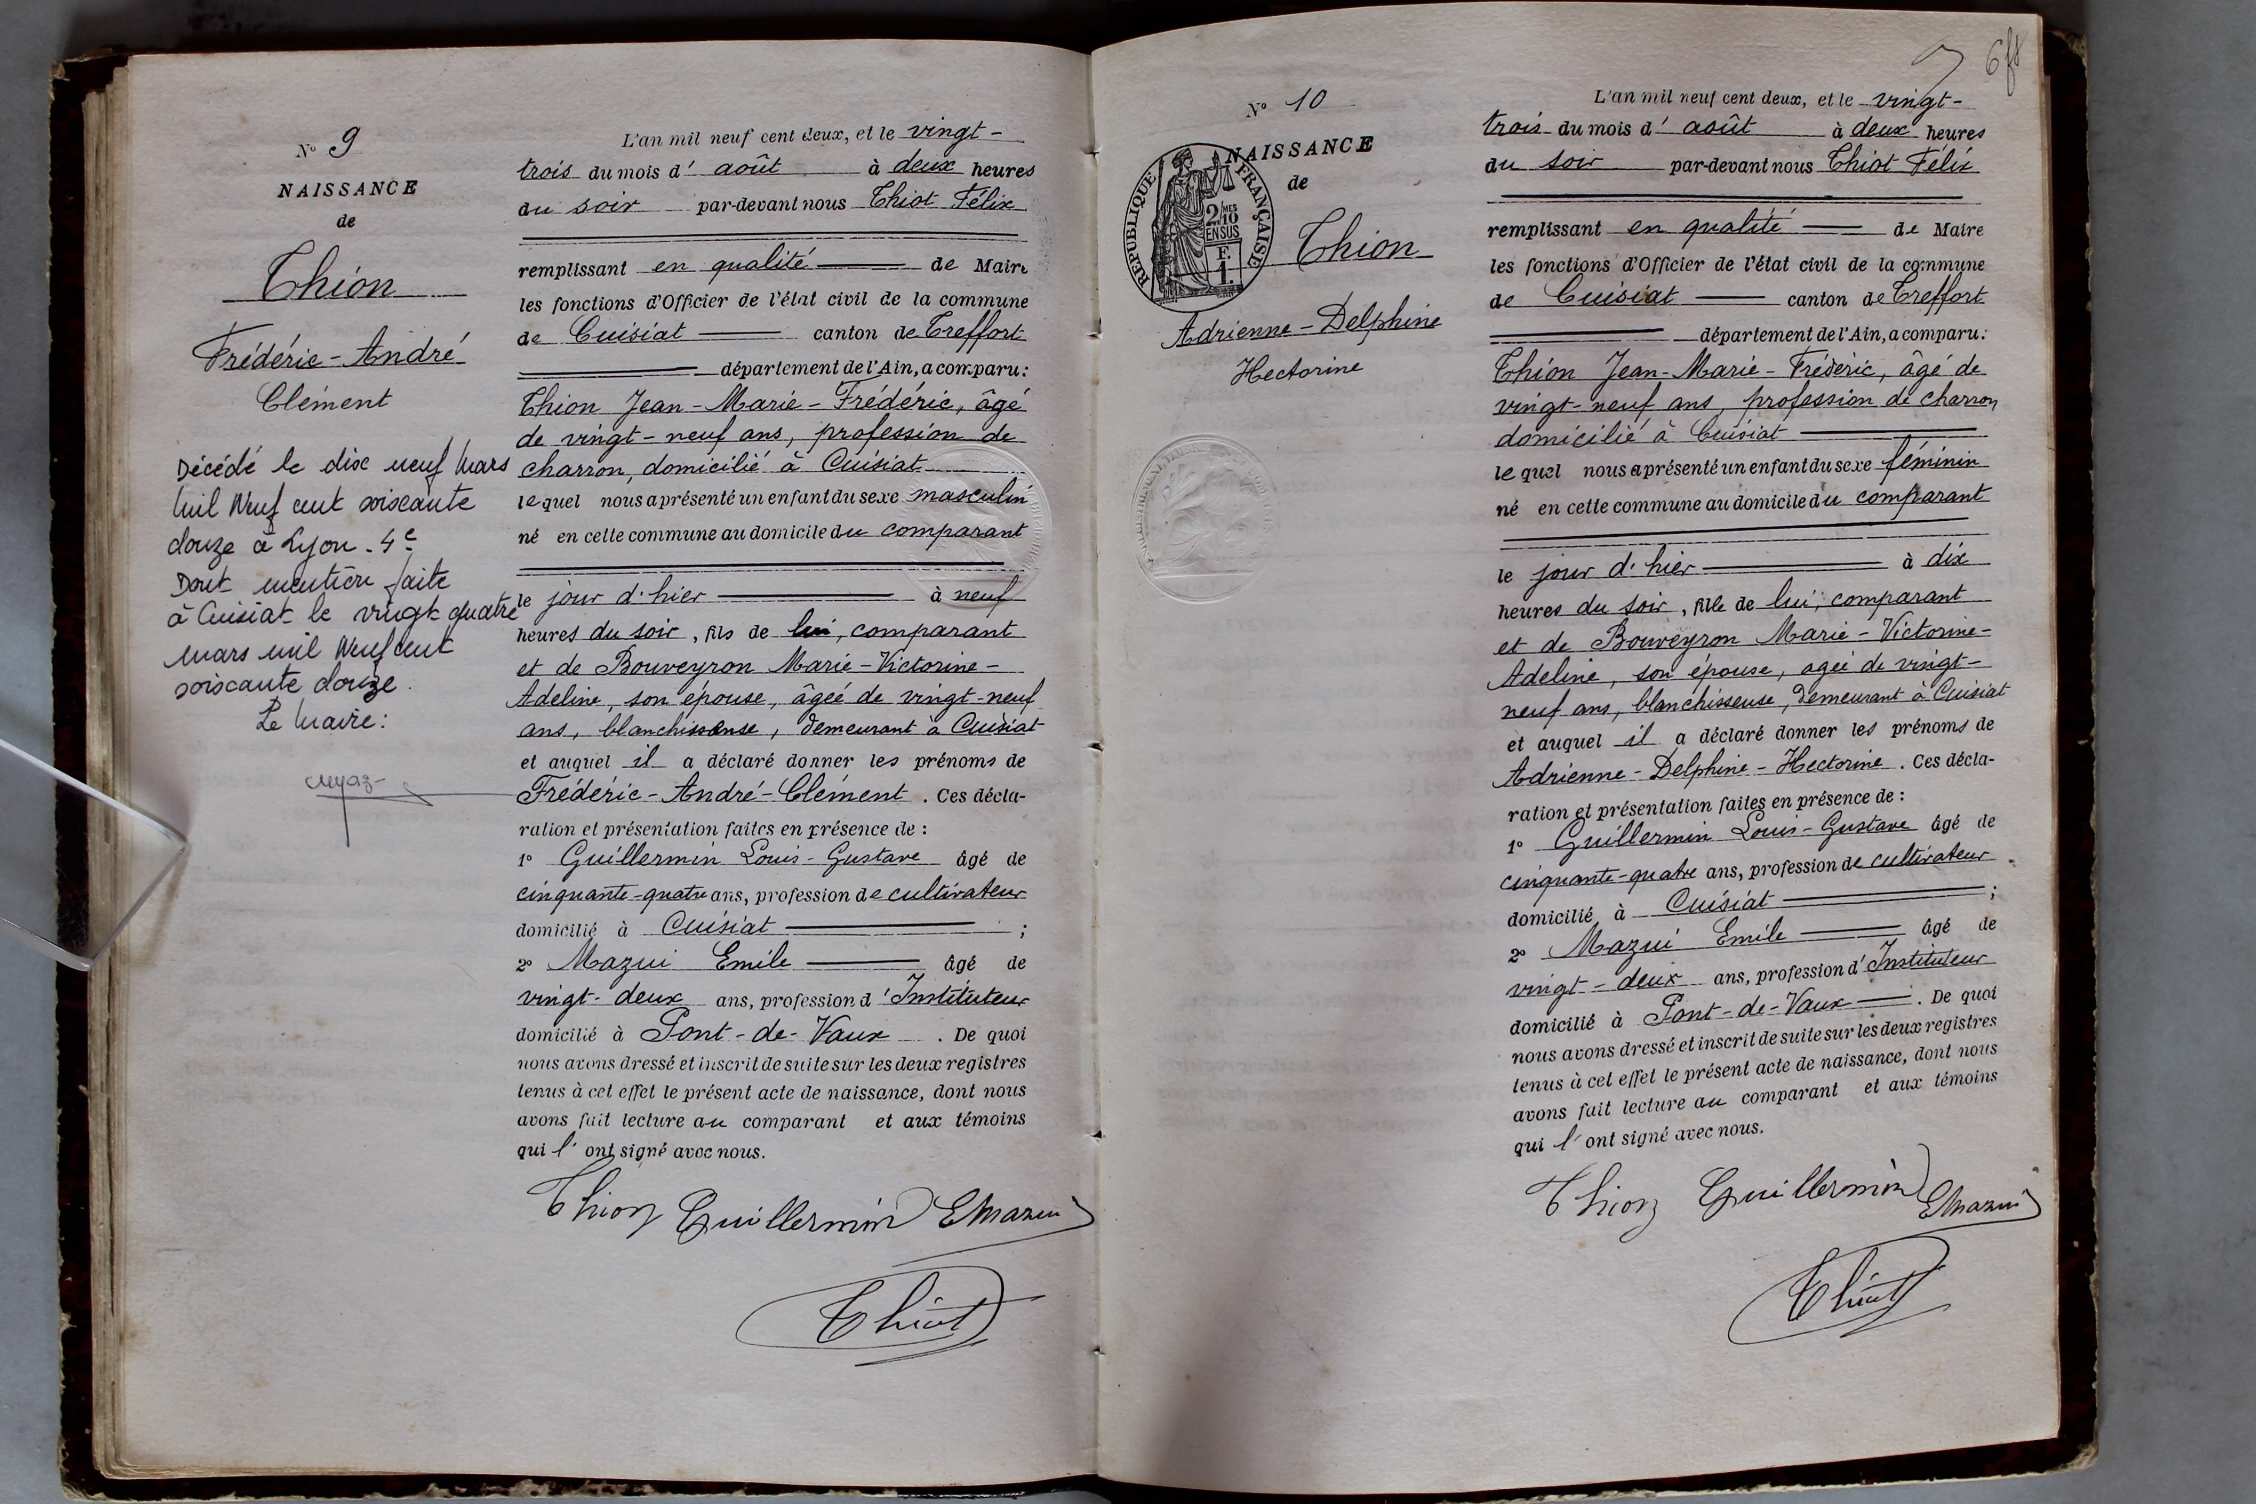 N° 9
NAISSANCE
de
Thion
Frédéric-André
Clément
Décédé le dix neuf Mars
Mil Neuf cent soixante
douze à Lyon - 4e
Dont mention faite
à Cuisiat le vingt quatre
mars mil Neuf cent
soixante douze.
Le Maire:
L'an mil neuf cent deux, et le vingt-
trois du mois d' août à deux heures
du soir par-devant nous Thiot Félix
remplissant en qualité de Maire
les fonctions d'Officier de l'état civil de la commune
de Cuisiat canton de Treffort
département de l'Ain, a comparu:
Thion Jean-Marie-Frédéric, âgé
de vingt-neuf ans, profession de
charron, domicilié à Cuisiat
lequel nous a présenté un enfant du sexe masculin
né en cette commune au domicile du comparant
le jour d'hier à neuf
heures du soir, fils de lui, comparant
et de Bouveyron Marie-Victorine-
Adeline, son épouse, âgée de vingt-neuf
ans, blanchisseuse, demeurant à Cuisiat
et auquel il a déclaré donner les prénoms de
Frédéric-André-Clément. Ces décla-
ration et présentation faites en présence de:
1° Guillermin Louis-Gustave âgé de
cinquante-quatre ans, profession de cultivateur
domicilié à Cuisiat ;
2° Mazui Emile âgé de
vingt-deux ans, profession d'Instituteur
domicilié à Pont-de-Vaux. De quoi
nous avons dressé et inscrit de suite sur les deux registres
tenus à cet effet le présent acte de naissance, dont nous
avons fait lecture au comparant et aux témoins
qui l'ont signé avec nous.
Thion Guillermin EMazui
Thiot
N° 10
NAISSANCE
de
RÉPUBLIQUE FRANÇAISE
2/10 MES
EN SUS
F.
1.
Thion
Adrienne-Delphine
Hectorine
L'an mil neuf cent deux, et le vingt-
trois du mois d' août à deux heures
du soir par-devant nous Thiot Félix
remplissant en qualité de Maire
les fonctions d'Officier de l'état civil de la commune
de Cuisiat canton de Treffort
département de l'Ain, a comparu:
Thion Jean-Marie-Frédéric, âgé de
vingt-neuf ans, profession de charron
domicilié à Cuisiat
lequel nous a présenté un enfant du sexe féminin
né en cette commune au domicile du comparant
le jour d'hier à dix
heures du soir, fille de lui, comparant
et de Bouveyron Marie-Victorine-
Adeline, son épouse, agée de vingt-
neuf ans, blanchisseuse, demeurant à Cuisiat
et auquel il a déclaré donner les prénoms de
Adrienne-Delphine-Hectorine. Ces décla-
ration et présentation faites en présence de:
1° Guillermin Louis-Gustave âgé de
cinquante-quatre ans, profession de cultivateur
domicilié à Cuisiat ;
2° Mazui Emile âgé de
vingt-deux ans, profession d'Instituteur
domicilié à Pont-de-Vaux. De quoi
nous avons dressé et inscrit de suite sur les deux registres
tenus à cet effet le présent acte de naissance, dont nous
avons fait lecture au comparant et aux témoins
qui l'ont signé avec nous.
Thion Guillermin EMazui
Thiot